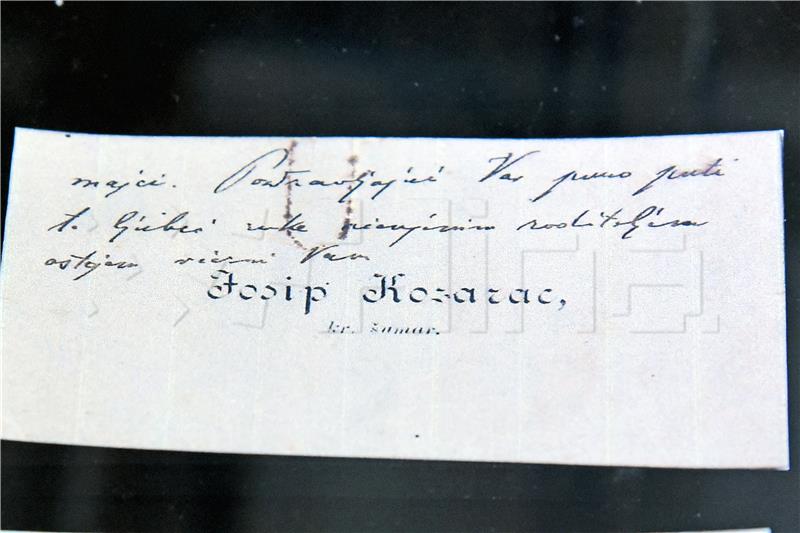 majci. Pozdravljajući Vas puno puti
t. ljubeć ruke cienjenim roditeljem
ostajem vierni Vam
Josip Kozarac,
kr. šumar.
Hina